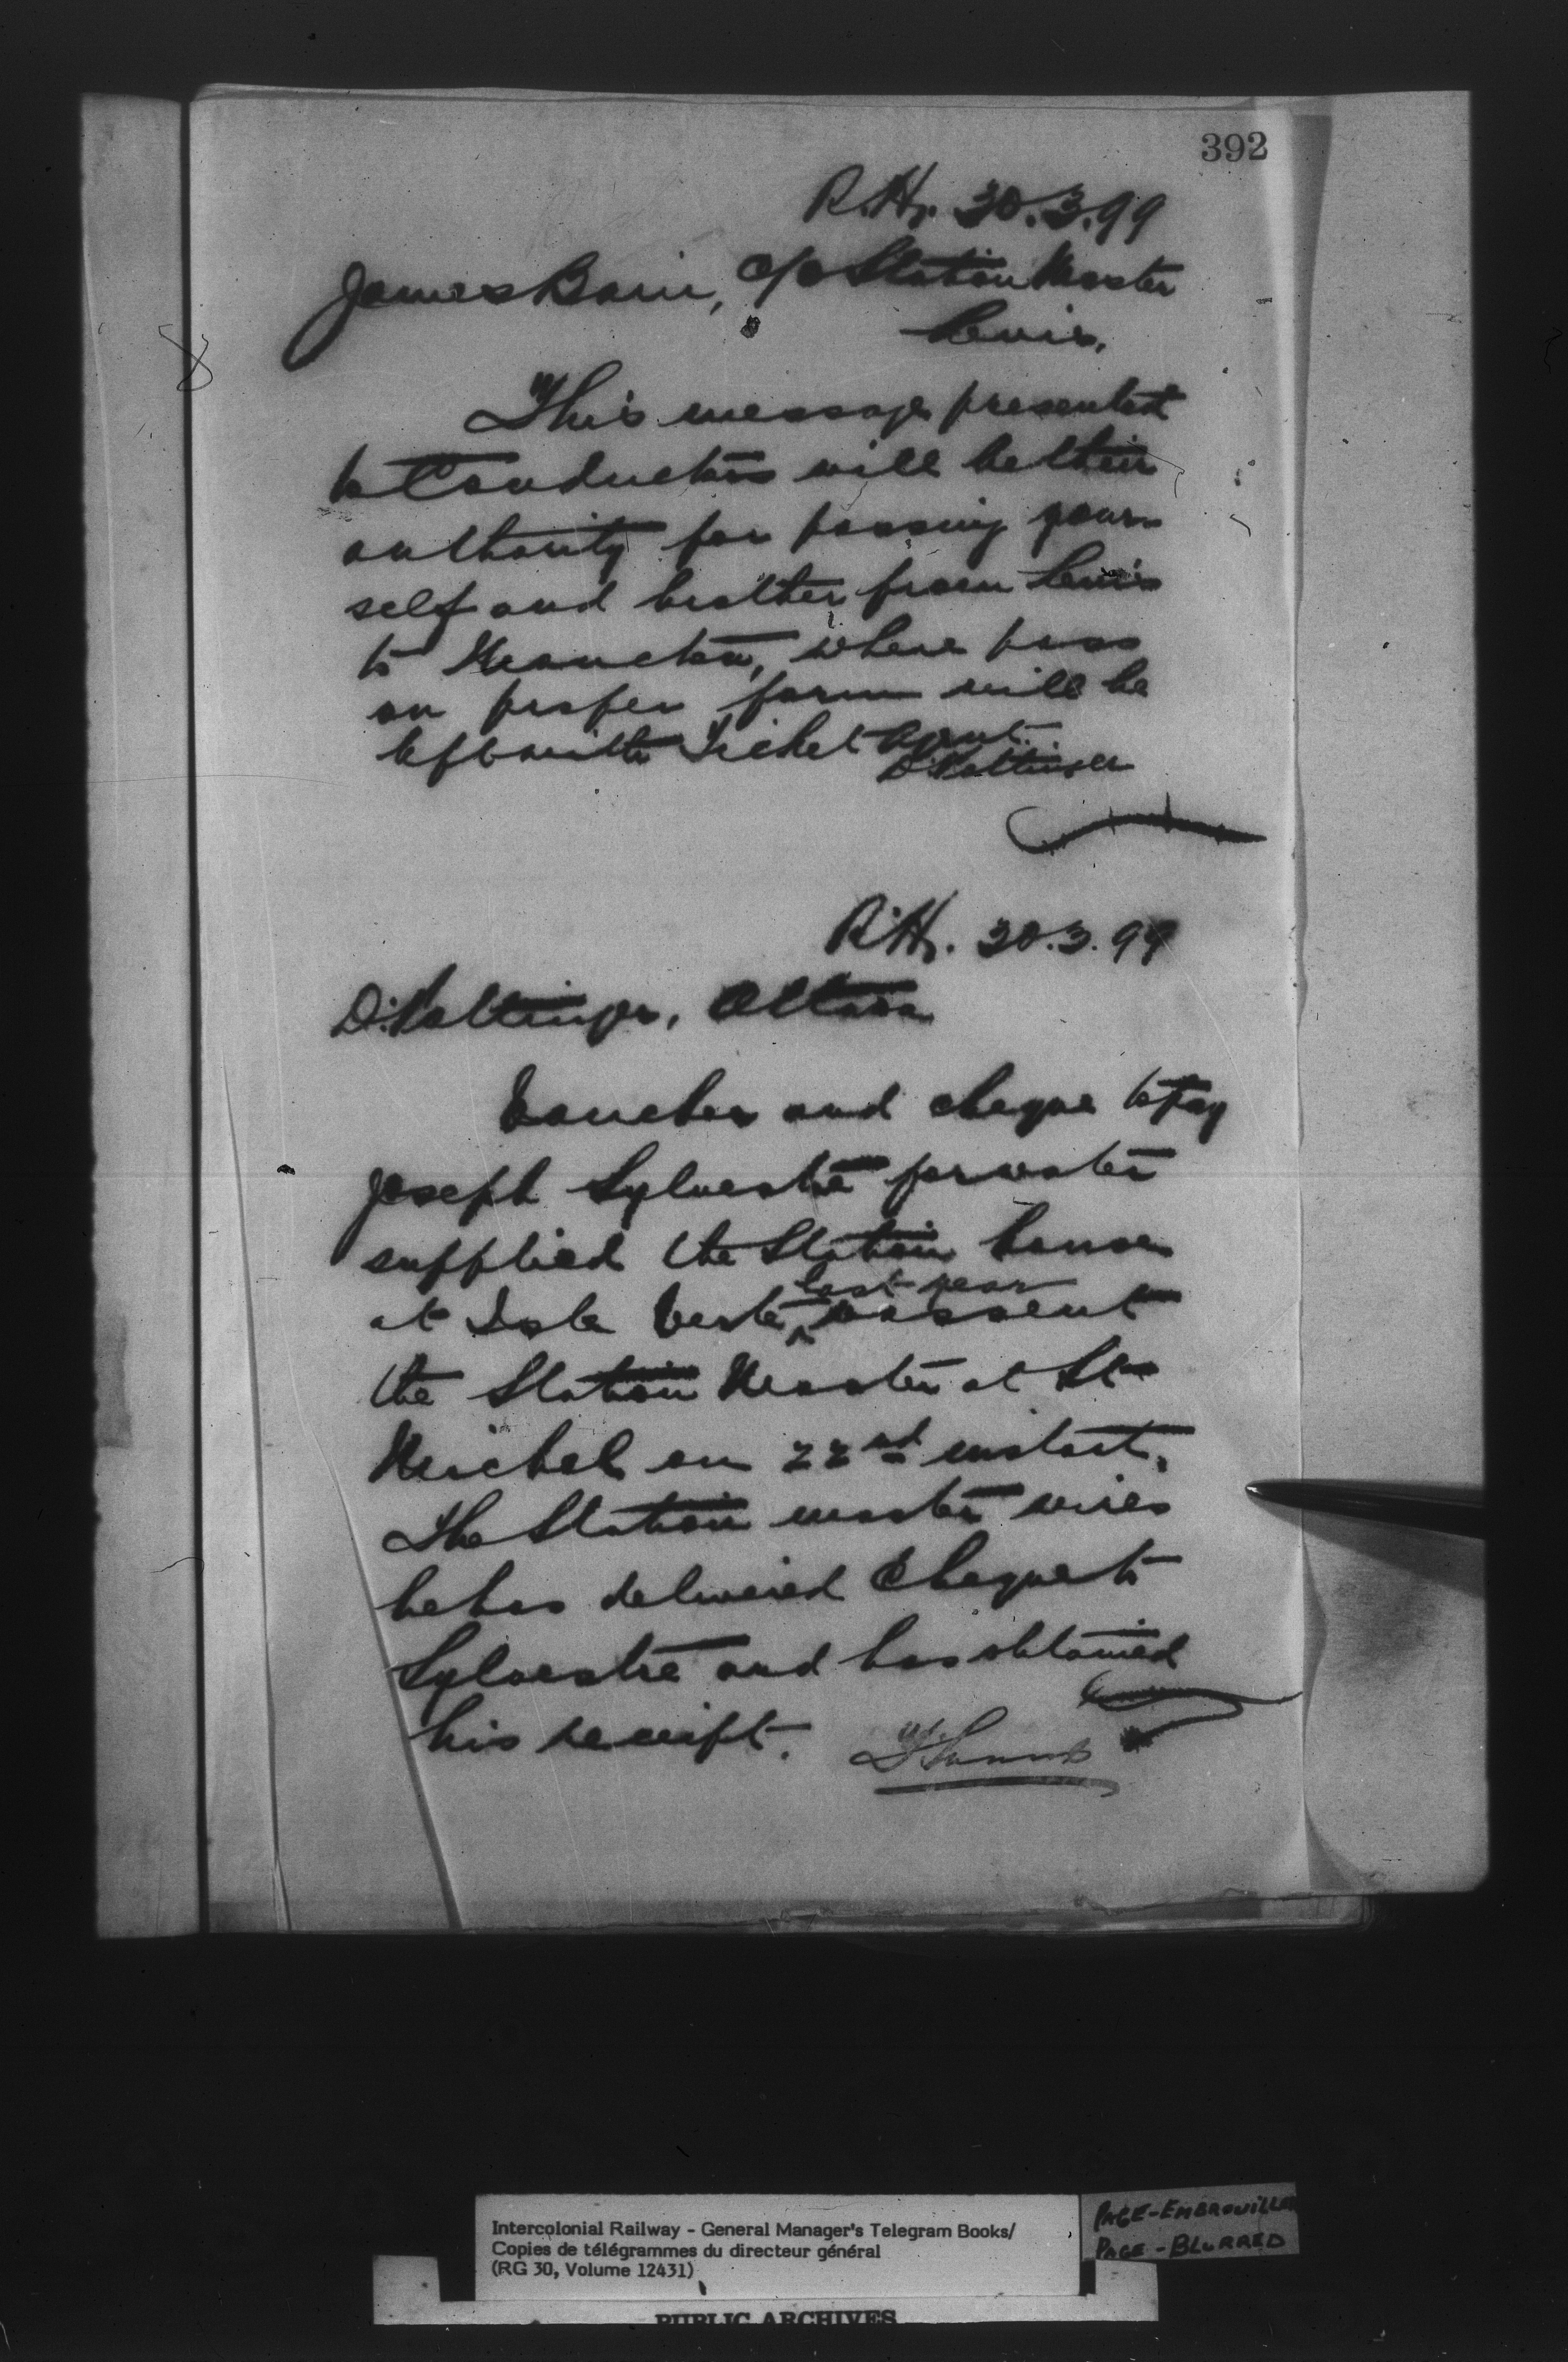 392
R.H. 30.3.99
James Bain, c/o Station Master
Levis,
This message presented
to Conductors will be their
authority for passing your
self and brother from Levis
to Moncton, where pass
on proper form will be
left with Ticket Agent.
D. Pottinger
R.H. 30.3.99
D. Pottinger, Ottawa
Voucher and cheque to pay
Joseph Sylvestre for water
supplied the Station house
last year
at Isle Verte, was sent
the Station Master at St
Michel on 22nd instart,
The Station master wires
he has delivered Cheque to
Sylvestre and has obtained
his receipt.
Intercolonial Railway - General Manager's Telegram Books/
Copies de télégrammes du directeur général
(RG 30, Volume 12431)
PAGE-EMBROUILLEE
PAGE-BLURRED
PUBLIC ARCHIVES